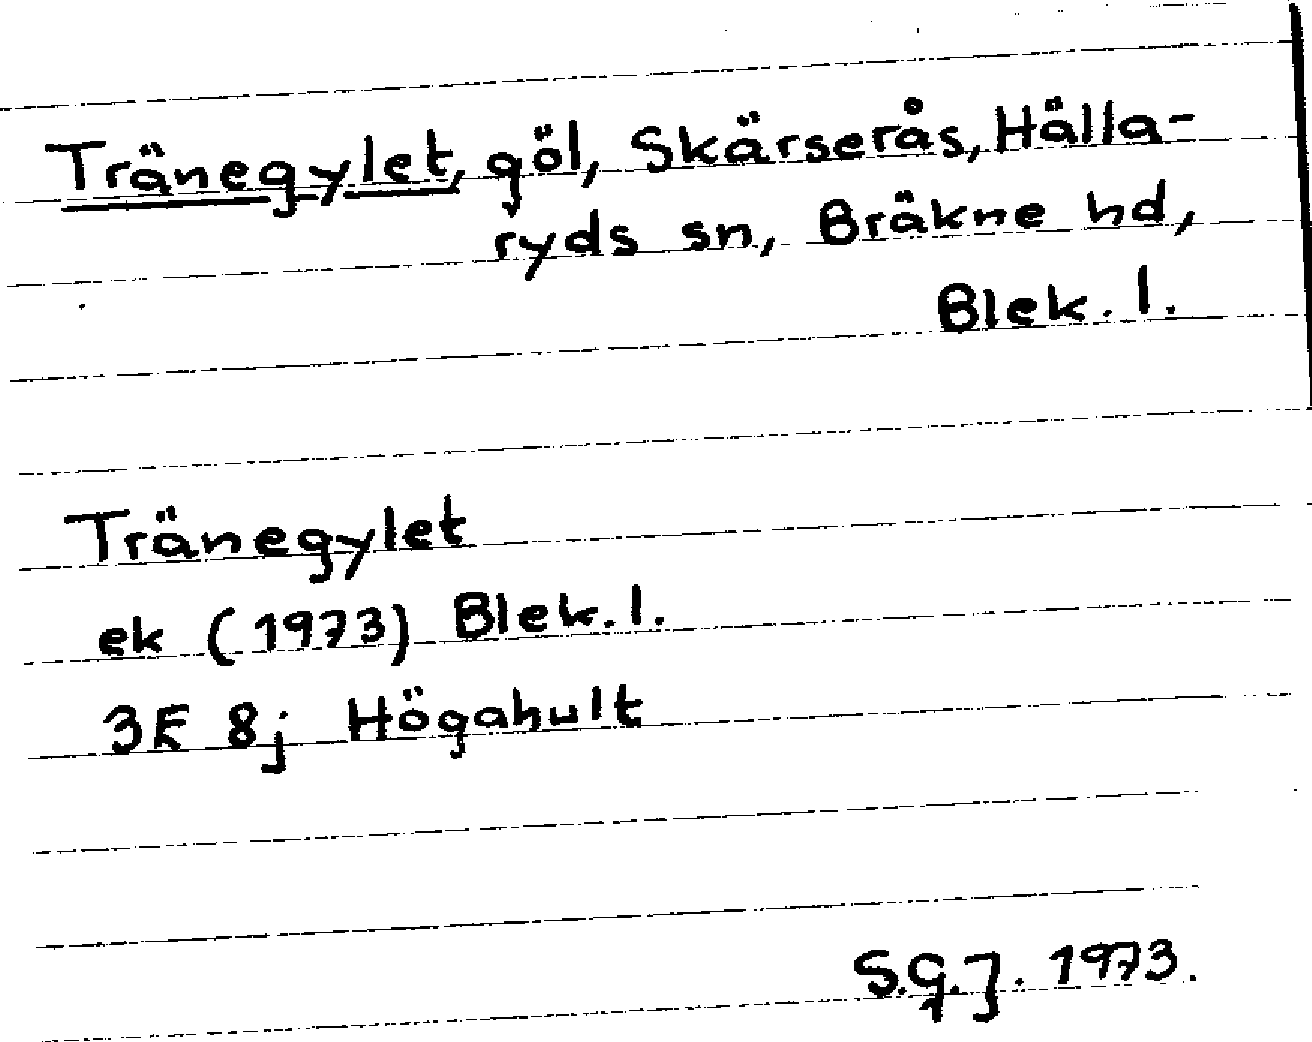 Tränegylet, göl, Skärserås, Hälla-
ryds sn, Bräkne hd,
Blek. l.
Tränegylet
ek (1973) Blek. l.
3E 8j Högahult
S.G.J. 1973.